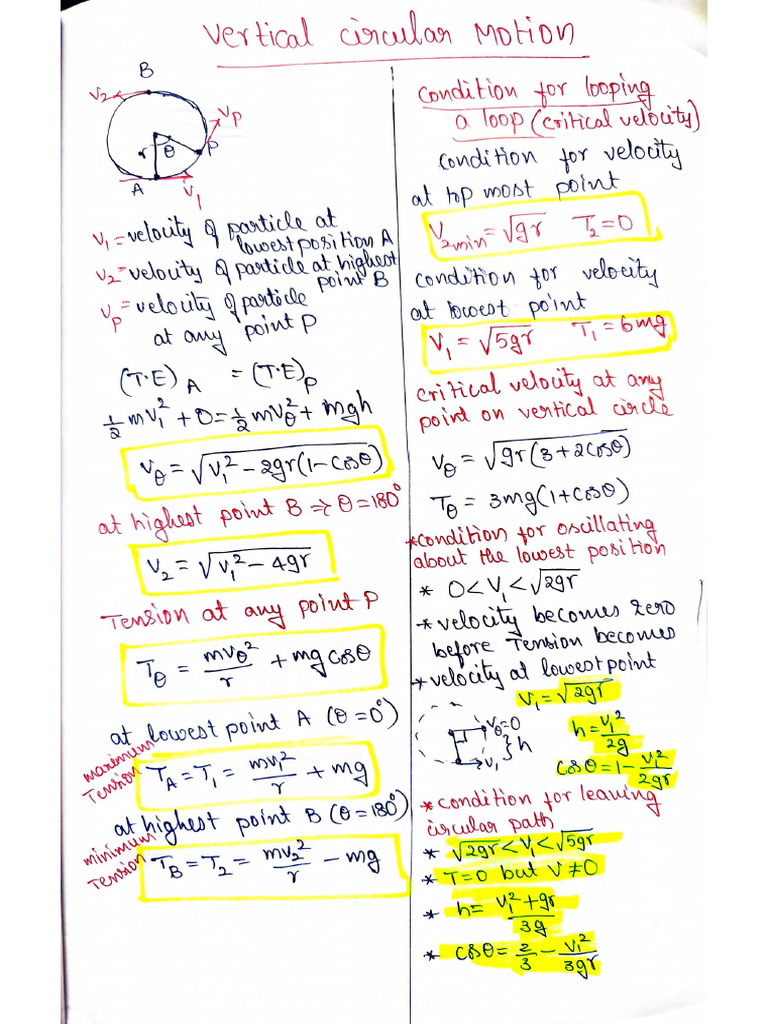 Vertical Circular Motion
B
V₂
V_P
r
θ
P
A
V₁
V₁ = velocity of particle at
lowest position A
V₂ = velocity of particle at highest
point B
V_P = velocity of particle
at any point P
(T.E)_A = (T.E)_P
½mV₁² + 0 = ½mV_θ² + mgh
V_θ = √(V₁² - 2gr(1 - cosθ))
at highest point B ⇒ θ = 180°
V₂ = √(V₁² - 4gr)
Tension at any point P
T_θ = mV_θ²/r + mg cosθ
at lowest point A (θ = 0°)
maximum
Tension
T_A = T₁ = mV₁²/r + mg
at highest point B (θ = 180°)
minimum
Tension
T_B = T₂ = mV₂²/r - mg
condition for looping
a loop (critical velocity)
condition for velocity
at top most point
V₂min = √gr T₂ = 0
condition for velocity
at lowest point
V₁ = √5gr T₁ = 6mg
critical velocity at any
point on vertical circle
V_θ = √(gr(3 + 2cosθ))
T_θ = 3mg(1 + cosθ)
*condition for oscillating
about the lowest position
* 0 < V₁ < √2gr
* velocity becomes zero
before Tension becomes
* velocity at lowest point
V₁ = √2gr
V_θ = 0
h
V₁
h = V₁²/2g
cosθ = 1 - V₁²/2gr
* condition for leaving
circular path
* √2gr < V₁ < √5gr
* T = 0 but V ≠ 0
* h = V₁² + gr/3g
* cosθ = 2/3 - V₁²/3gr